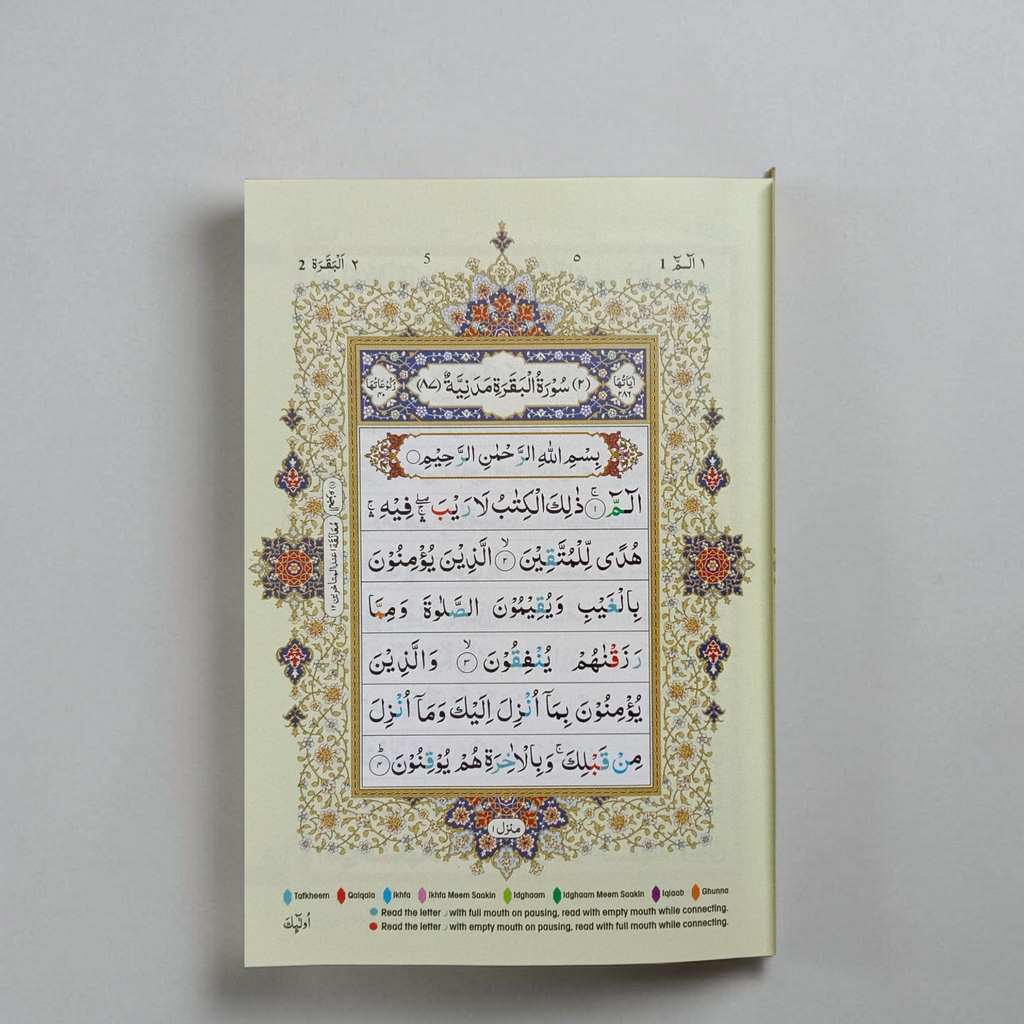 ١ الٓـمّٓ 1
٥
5
٢ اَلْبَقَرَة 2
اٰيَاتُهَا ٢٨٦
(٢) سُوْرَةُ الْبَقَرَةِ مَدَنِيَّةٌ (٨٧)
رُكُوْعَاتُهَا ٣٠
بِسْمِ اللّٰهِ الرَّحْمٰنِ الرَّحِيْمِ
الٓـمّٓ ۚ ١ ذٰلِكَ الْكِتٰبُ لَا رَيْبَ ۛۖ فِيْهِ ۛۚ
هُدًى لِّلْمُتَّقِيْنَ ۙ ٢ الَّذِيْنَ يُؤْمِنُوْنَ
بِالْغَيْبِ وَيُقِيْمُوْنَ الصَّلٰوةَ وَمِمَّا
رَزَقْنٰهُمْ يُنْفِقُوْنَ ۙ ٣ وَالَّذِيْنَ
يُؤْمِنُوْنَ بِمَآ اُنْزِلَ اِلَيْكَ وَمَآ اُنْزِلَ
مِنْ قَبْلِكَ ۚ وَبِالْاٰخِرَةِ هُمْ يُوْقِنُوْنَ ؕ ٤
معانقة ١ عند المتاخرين ١٢
منزل ١
Tafkheem Qalqala Ikhfa Ikhfa Meem Saakin Idghaam Idghaam Meem Saakin Iqlaab Ghunna
Read the letter ر with full mouth on pausing, read with empty mouth while connecting.
Read the letter ر with empty mouth on pausing, read with full mouth while connecting.
اُولٰٓئِكَ